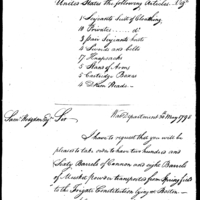 United States the following Articles. Viz
1 Serjeants Suit of Cloathing
10 Privates do
3 pair Serjeants
4 Swords and belts
17 Knapsacks
5 Stand of Arms
5 Cartridge Boxes
4 Drum Heads
War Department 20 May 1798
Saml Hodgdon Esqr Sir
I have to request that you will be
pleased to take order to have two hundred and
Sixty Barrels of Cannon and eight Barrels
of Musket powder transported from Springfield
to the Frigate Constitution lying at Boston